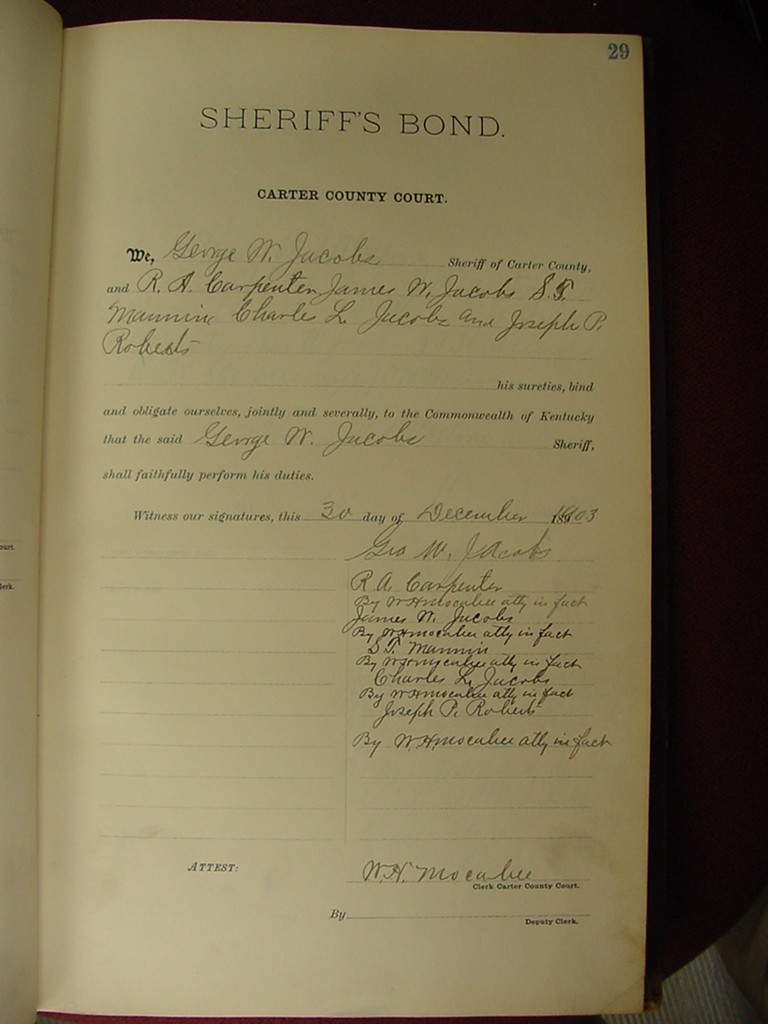 29
SHERIFF'S BOND.
CARTER COUNTY COURT.
We, George W. Jacobs Sheriff of Carter County,
and R. A. Carpenter James W. Jacobs S. T.
Mannin Charles L. Jacobs and Joseph P.
Roberts
his sureties, bind
and obligate ourselves, jointly and severally, to the Commonwealth of Kentucky
that the said George W. Jacobs Sheriff,
shall faithfully perform his duties.
Witness our signatures, this 30 day of December 1903
Geo W. Jacobs
R A. Carpenter
By W H Mocabee atty in fact
James W. Jacobs
By W H Mocabee atty in fact
S T. Mannin
By W H Mocabee atty in fact
Charles L. Jacobs
By W H Mocabee atty in fact
Joseph P. Roberts
By W. H. Mocabee atty in fact
ATTEST: W. H. Mocabee
Clerk Carter County Court.
By
Deputy Clerk.